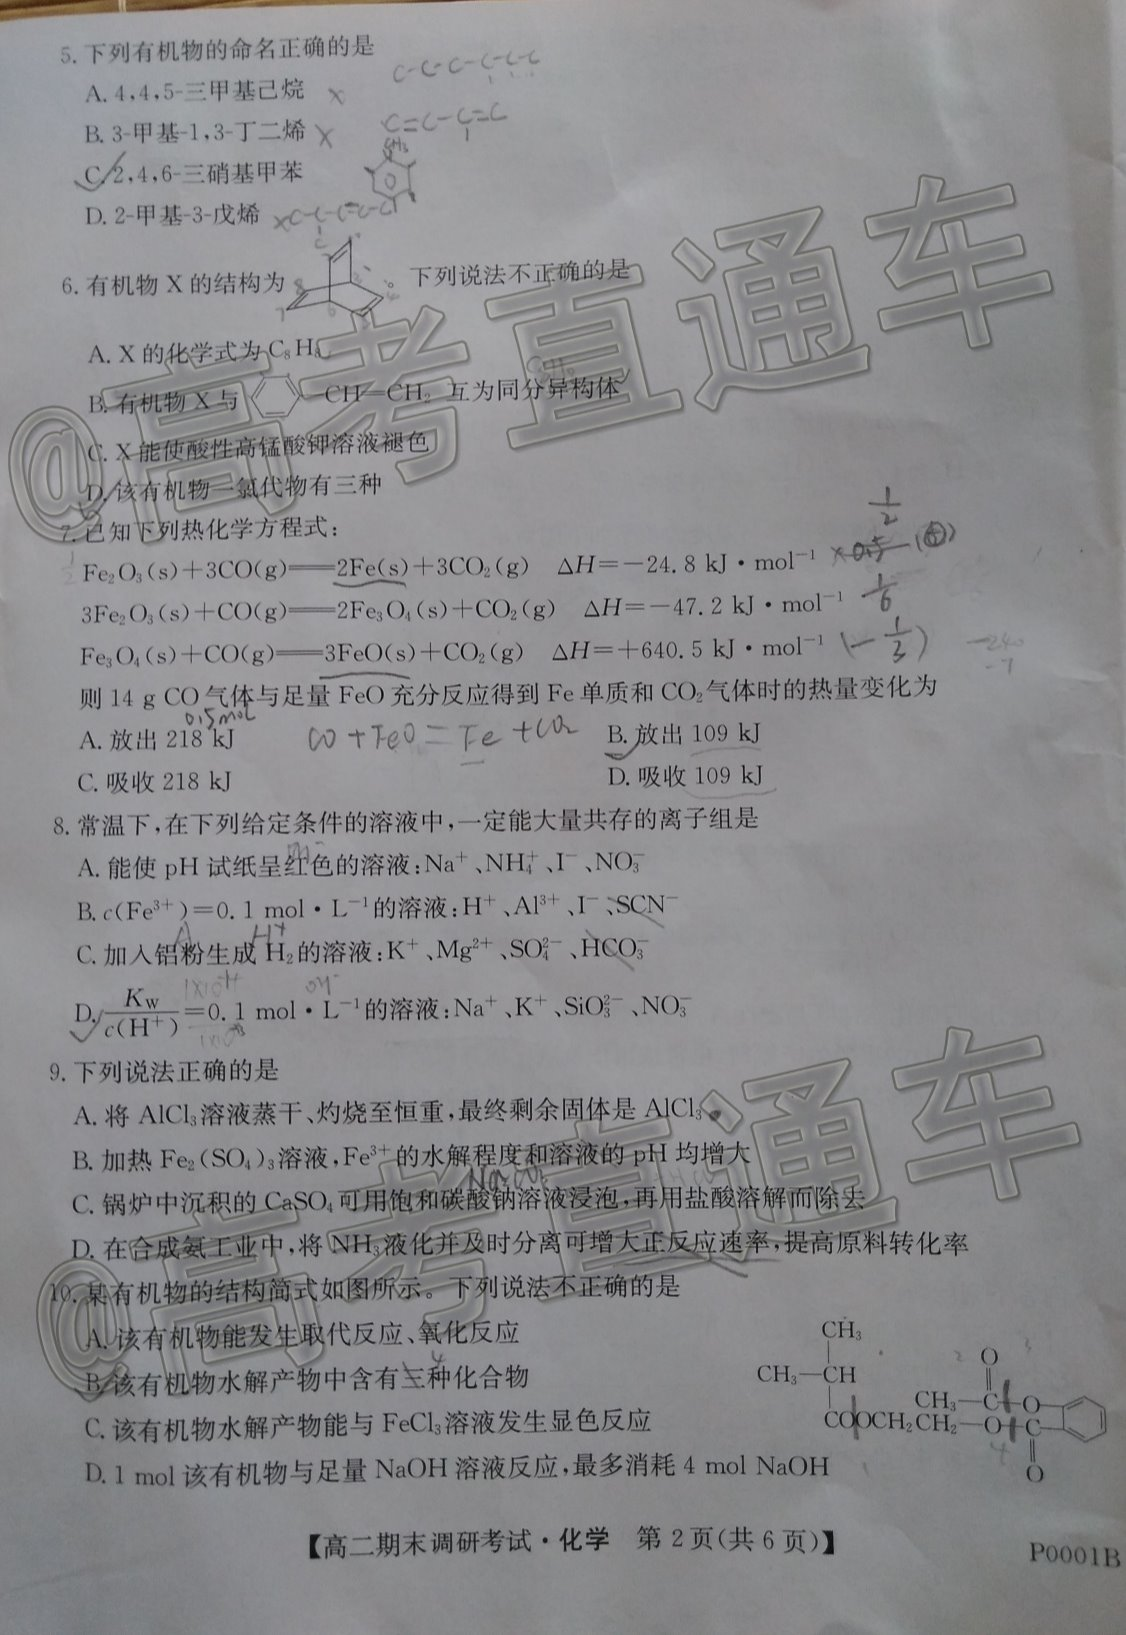 5. 下列有机物的命名正确的是
A. 4,4,5-三甲基己烷
B. 3-甲基-1,3-丁二烯
C. 2,4,6-三硝基甲苯
D. 2-甲基-3-戊烯
6. 有机物 X 的结构为 。下列说法不正确的是
A. X 的化学式为 C₈H₈
B. 有机物 X 与 —CH=CH₂ 互为同分异构体
C. X 能使酸性高锰酸钾溶液褪色
D. 该有机物一氯代物有三种
7. 已知下列热化学方程式:
Fe₂O₃(s)+3CO(g)══2Fe(s)+3CO₂(g) △H=−24.8 kJ·mol⁻¹
3Fe₂O₃(s)+CO(g)══2Fe₃O₄(s)+CO₂(g) △H=−47.2 kJ·mol⁻¹
Fe₃O₄(s)+CO(g)══3FeO(s)+CO₂(g) △H=+640.5 kJ·mol⁻¹
则 14 g CO 气体与足量 FeO 充分反应得到 Fe 单质和 CO₂ 气体时的热量变化为
0.5mol
A. 放出 218 kJ CO+FeO=Fe+CO₂ B. 放出 109 kJ
C. 吸收 218 kJ D. 吸收 109 kJ
8. 常温下,在下列给定条件的溶液中,一定能大量共存的离子组是
A. 能使 pH 试纸呈红色的溶液:Na⁺、NH₄⁺、I⁻、NO₃⁻
B. c(Fe³⁺)=0.1 mol·L⁻¹的溶液:H⁺、Al³⁺、I⁻、SCN⁻
C. 加入铝粉生成 H₂ 的溶液:K⁺、Mg²⁺、SO₄²⁻、HCO₃⁻
D. Kw/c(H⁺)=0.1 mol·L⁻¹的溶液:Na⁺、K⁺、SiO₃²⁻、NO₃⁻
9. 下列说法正确的是
A. 将 AlCl₃ 溶液蒸干、灼烧至恒重,最终剩余固体是 AlCl₃
B. 加热 Fe₂(SO₄)₃ 溶液,Fe³⁺的水解程度和溶液的 pH 均增大
C. 锅炉中沉积的 CaSO₄ 可用饱和碳酸钠溶液浸泡,再用盐酸溶解而除去
D. 在合成氨工业中,将 NH₃ 液化并及时分离可增大正反应速率,提高原料转化率
10. 某有机物的结构简式如图所示。下列说法不正确的是
A. 该有机物能发生取代反应、氧化反应
B. 该有机物水解产物中含有三种化合物
C. 该有机物水解产物能与 FeCl₃ 溶液发生显色反应
D. 1 mol 该有机物与足量 NaOH 溶液反应,最多消耗 4 mol NaOH
CH₃
CH₃—CH O
CH₃—C—O
COOCH₂CH₂—O—C
O
【高二期末调研考试·化学 第 2 页(共 6 页)】
P0001B
@高考直通车
@高考直通车